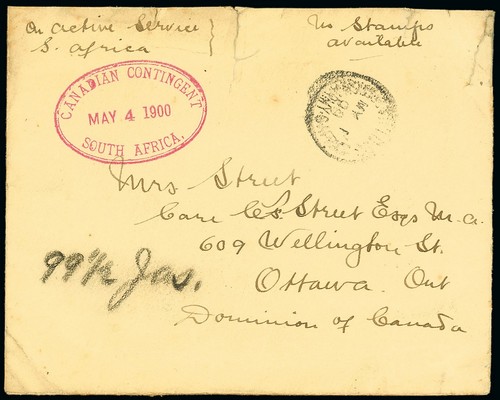 On Active Service
S. Africa
No Stamps
available
CANADIAN CONTINGENT
MAY 4 1900
SOUTH AFRICA.
Mrs Street
Care Street Esqr M.A.
609 Wellington St.
Ottawa. Ont
Dominion of Canada
99½ Jas.